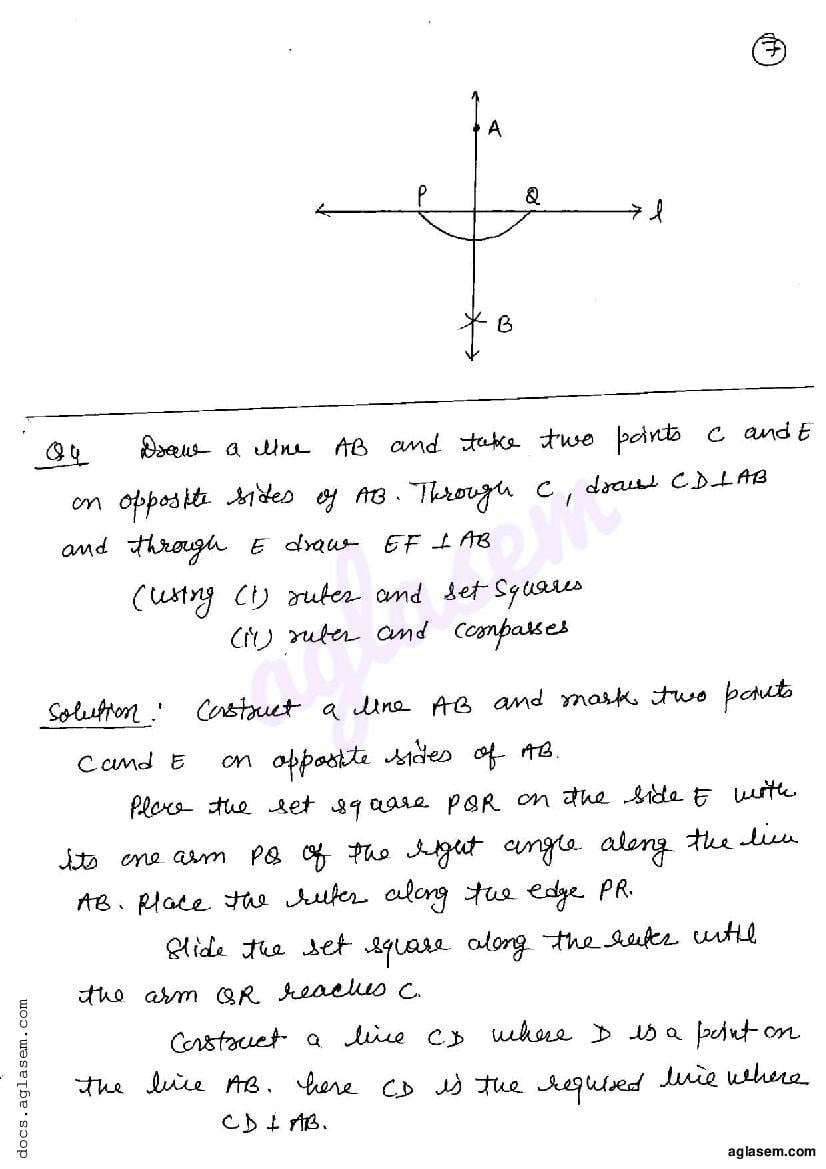 7
A
P
Q
l
B
Q4 Draw a line AB and take two points C and E
on opposite sides of AB. Through C, draw CD⊥AB
and through E draw EF ⊥ AB
(using (i) ruler and set squares
(ii) ruler and compasses
Solution: Construct a line AB and mark two points
C and E on opposite sides of AB.
Place the set square PQR on the side E with
its one arm PQ of the right angle along the line
AB. Place the ruler along the edge PR.
Slide the set square along the ruler until
the arm QR reaches C.
Construct a line CD where D is a point on
the line AB. here CD is the required line where
CD ⊥ AB.
aglasem
docs.aglasem.com
aglasem.com